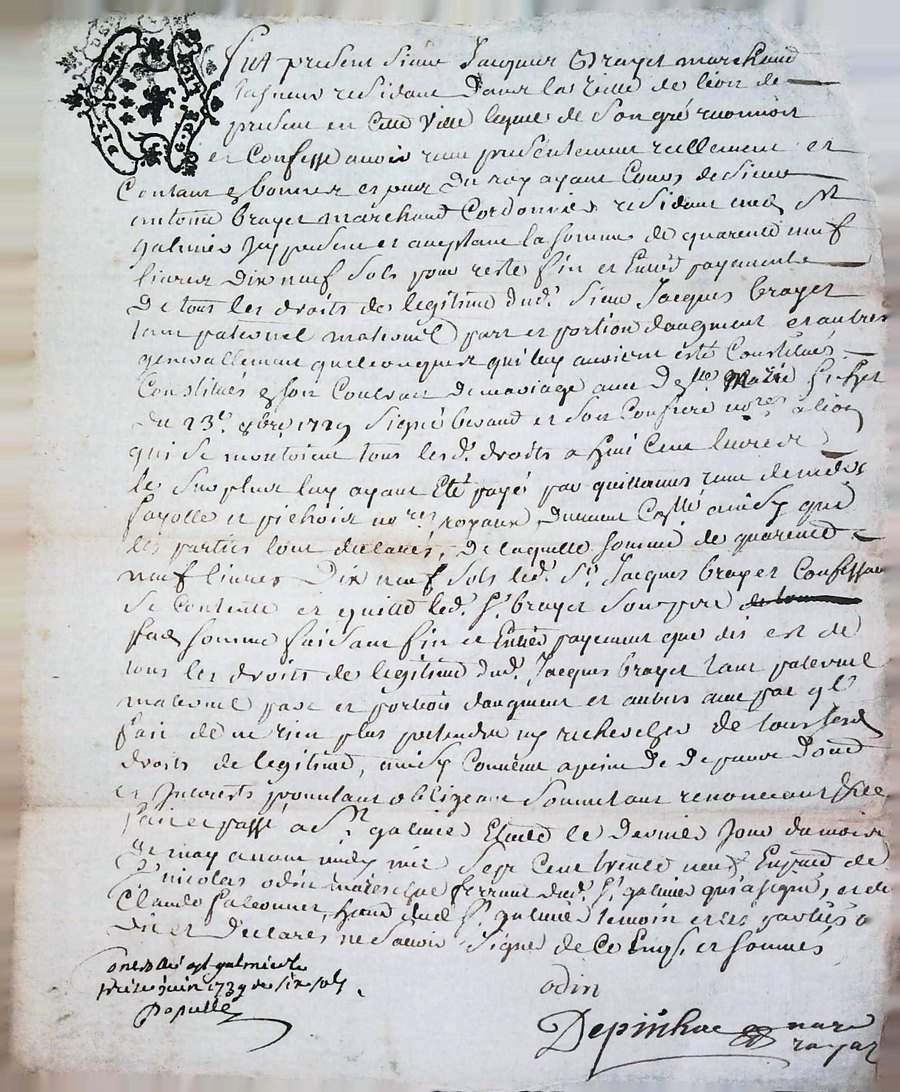 Fut present Sieur Jacques Brayet marchand
residant dans la ville de lion de
present en cette ville lequel de son gré reconnoit
et Confesse avoir receu presentement reellement et
Contant bonnes especes du roy ayant Cours de Sieur
antoine brayet marchand Cordonnier residant aud. St
galmier icy present et aceptant la somme de quarente neuf
livres Dix neuf sols pour reste fin et Entier payement
De tous les droits de legitime dud. Sieur Jacques brayet
tant paternel maternel part et portion daugment et autres
generallement quelconques qui luy avoient esté Constitués
Constitues son Contract de mariage avec delle Marie
Du 23e 1729 Signé et son Confrere nores a lion
qui se montoient tous lesd. droits a huit Cent livres
le surplus luy ayant Eté payé par quittances receu de
fayolle et pichois nores royaux ainsy que
les parties lont declarés, De laquelle somme de quarente
neuf livres Dix neuf sols led. Sr Jacques brayet Confessant
se Contente et quitte led. Sr brayet son pere
lad. somme faisant fin et Entier payement que dis est de
tous les droits de legitime dud. Jacques brayet tant paternel
maternel part et portion daugment et autres avec pac
fait de ne rien plus pretendre ny rechercher de tous lesd.
droits de legitime, ainsy Convenu a peine de
et Interests promettant obligeant Soumettant renonceant
fait et passé a St galmier Etude le Dernier Jour du mois
De may avant midy mil Sept Cent trente neuf En presence de
Sr nicolas odin mareschal ferrant dud. St galmier qui a signé, et de
Claude falconnet, dud. St galmier temoin et les parties
Dit et Declarés ne scavoir Signé de Ce Enquis et sommés
odin
Controllé a St galmier le
treize juin 1739 de six sols
Populle
Depinhac nore
royal